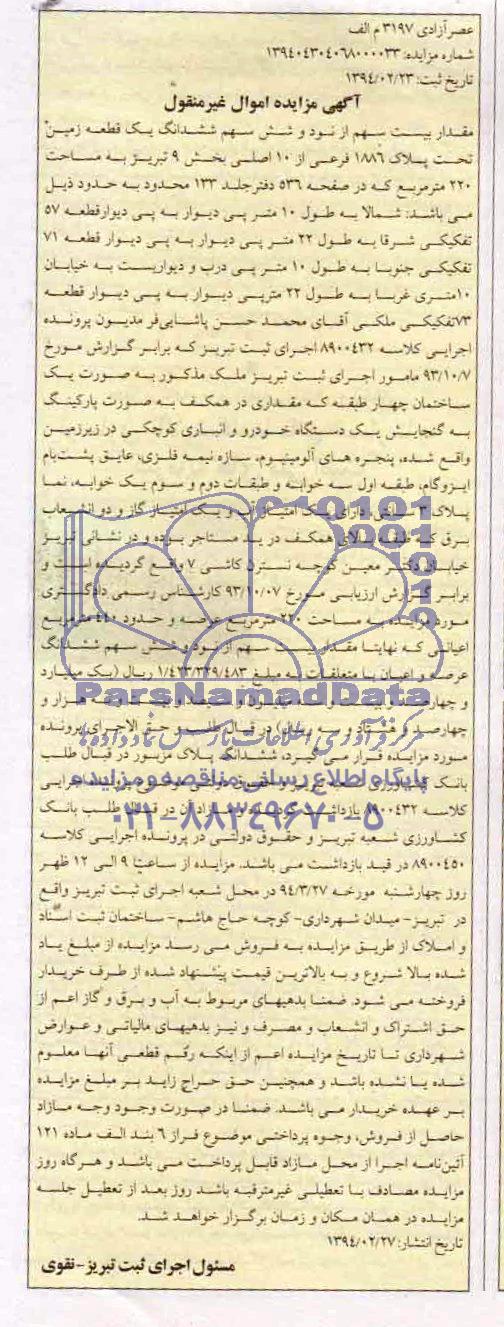 عصر آزادی ۳۱۹۷ م الف
شماره مزایده: ۱۳۹۴۰۴۳۰۴۰۶۸۰۰۰۰۳۳
تاریخ ثبت: ۱۳۹۴/۰۲/۲۳
آگهی مزایده اموال غیرمنقول
مقدار بیست سهم از نود و شش سهم ششدانگ یک قطعه زمین
تحت پلاک ۱۸۸۶ فرعی از ۱۰ اصلی بخش ۹ تبریز به مساحت
۲۲۰ مترمربع که در صفحه ۵۳۶ دفترجلد ۱۳۳ محدود به حدود ذیل
می باشد: شمالا به طول ۱۰ متر پی دیوار به پی دیوارقطعه ۵۷
تفکیکی شرقا به طول ۲۲ متر پی دیوار به پی دیوار قطعه ۷۱
تفکیکی جنوبا به طول ۱۰ متر پی درب و دیواریست به خیابان
۱۰متری غربا به طول ۲۲ مترپی دیوار به پی دیوار قطعه
۷۳تفکیکی ملکی آقای محمد حسن پاشایی‌فر مدیون پرونده
اجرایی کلاسه ۸۹۰۰۴۳۲ اجرای ثبت تبریز که برابر گزارش مورخ
۹۳/۱۰/۷ مامور اجرای ثبت تبریز ملک مذکور به صورت یک
ساختمان چهار طبقه که مقداری در همکف به صورت پارکینگ
به گنجایش یک دستگاه خودرو و انباری کوچکی در زیرزمین
واقع شده، پنجره های آلومینیوم، سازه نیمه فلزی، عایق پشت‌بام
ایزوگام، طبقه اول سه خوابه و طبقات دوم و سوم یک خوابه، نما
پلاک ۳ سانتی، دارای یک امتیاز آب و یک امتیاز گاز و دو انشعاب
برق که طبقه بالای همکف در ید مستاجر بوده و در نشانی تبریز
خیابان دکتر معین کوچه نسترن کاشی ۷ واقع گردیده است و
برابر گزارش ارزیابی مورخ ۹۳/۱۰/۰۷ کارشناس رسمی دادگستری
مورد مزایده به مساحت ۲۲۰ مترمربع عرصه و حدود ۴۴۰ مترمربع
اعیانی که نهایتا مقدار بیست سهم از نود و شش سهم ششدانگ
عرصه و اعیان با متعلقات به مبلغ ۱/۴۲۳/۳۲۹/۴۸۳ ریال (یک میلیارد
و چهارصد و بیست و سه میلیون و سیصد و بیست و نه هزار و
چهارصد و هشتاد و سه ریال) در قبال طلب و حق الاجرای پرونده
مورد مزایده قرار می گیرد، ششدانگ پلاک مزبور در قبال طلب
بانک کشاورزی شعبه تبریز و حقوق دولتی پرونده اجرایی
کلاسه ۸۹۰۰۴۳۲ بازداشت بوده مازاد آن در قبال طلب بانک
کشاورزی شعبه تبریز و حقوق دولتی در پرونده اجرایی کلاسه
۸۹۰۰۴۵۰ در قید بازداشت می باشد. مزایده از ساعت ۹ الی ۱۲ ظهر
روز چهارشنبه مورخه ۹۴/۳/۲۷ در محل شعبه اجرای ثبت تبریز واقع
در تبریز- میدان شهرداری- کوچه حاج هاشم- ساختمان ثبت اسناد
و املاک از طریق مزایده به فروش می رسد مزایده از مبلغ یاد
شده بالا شروع و به بالاترین قیمت پیشنهاد شده از طرف خریدار
فروخته می شود. ضمنا بدهیهای مربوط به آب و برق و گاز اعم از
حق اشتراک و انشعاب و مصرف و نیز بدهیهای مالیاتی و عوارض
شهرداری تا تاریخ مزایده اعم از اینکه رقم قطعی آنها معلوم
شده یا نشده باشد و همچنین حق حراج زاید بر مبلغ مزایده
بر عهده خریدار می باشد. ضمنا در صورت وجود وجه مازاد
حاصل از فروش، وجوه پرداختی موضوع فراز ۶ بند الف ماده ۱۲۱
آئین‌نامه اجرا از محل مازاد قابل پرداخت می باشد و هرگاه روز
مزایده مصادف با تعطیلی غیرمترقبه باشد روز بعد از تعطیل جلسه
مزایده در همان مکان و زمان برگزار خواهد شد.
تاریخ انتشار: ۱۳۹۴/۰۲/۲۷
مسئول اجرای ثبت تبریز-نقوی
ParsNamadData
مرکز فرآوری اطلاعات پارس نماد داده‌ها
پایگاه اطلاع رسانی مناقصه و مزایده
۰۲۱-۸۸۳۴۹۶۷۰-۵